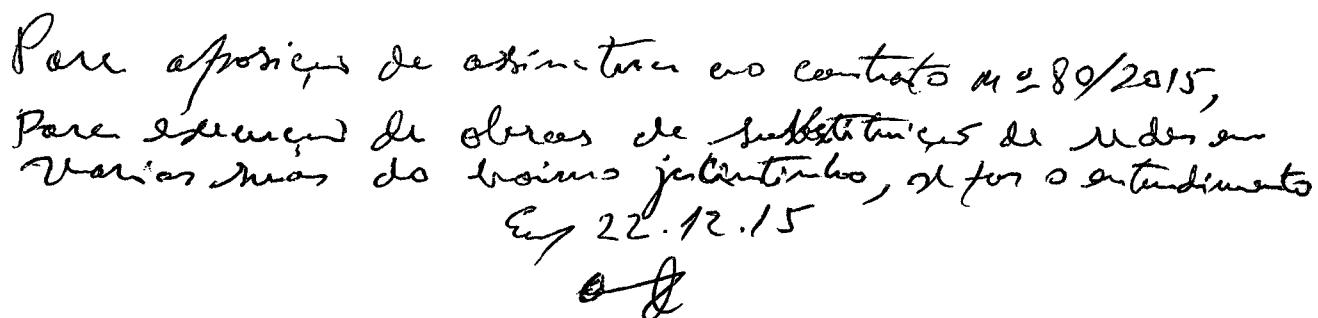 Para aposição de assinatura no contrato nº 80/2015,
Para execução de obras de substituição de redes em
varias ruas do bairro jacintinho, se for o entendimento
Em, 22.12.15